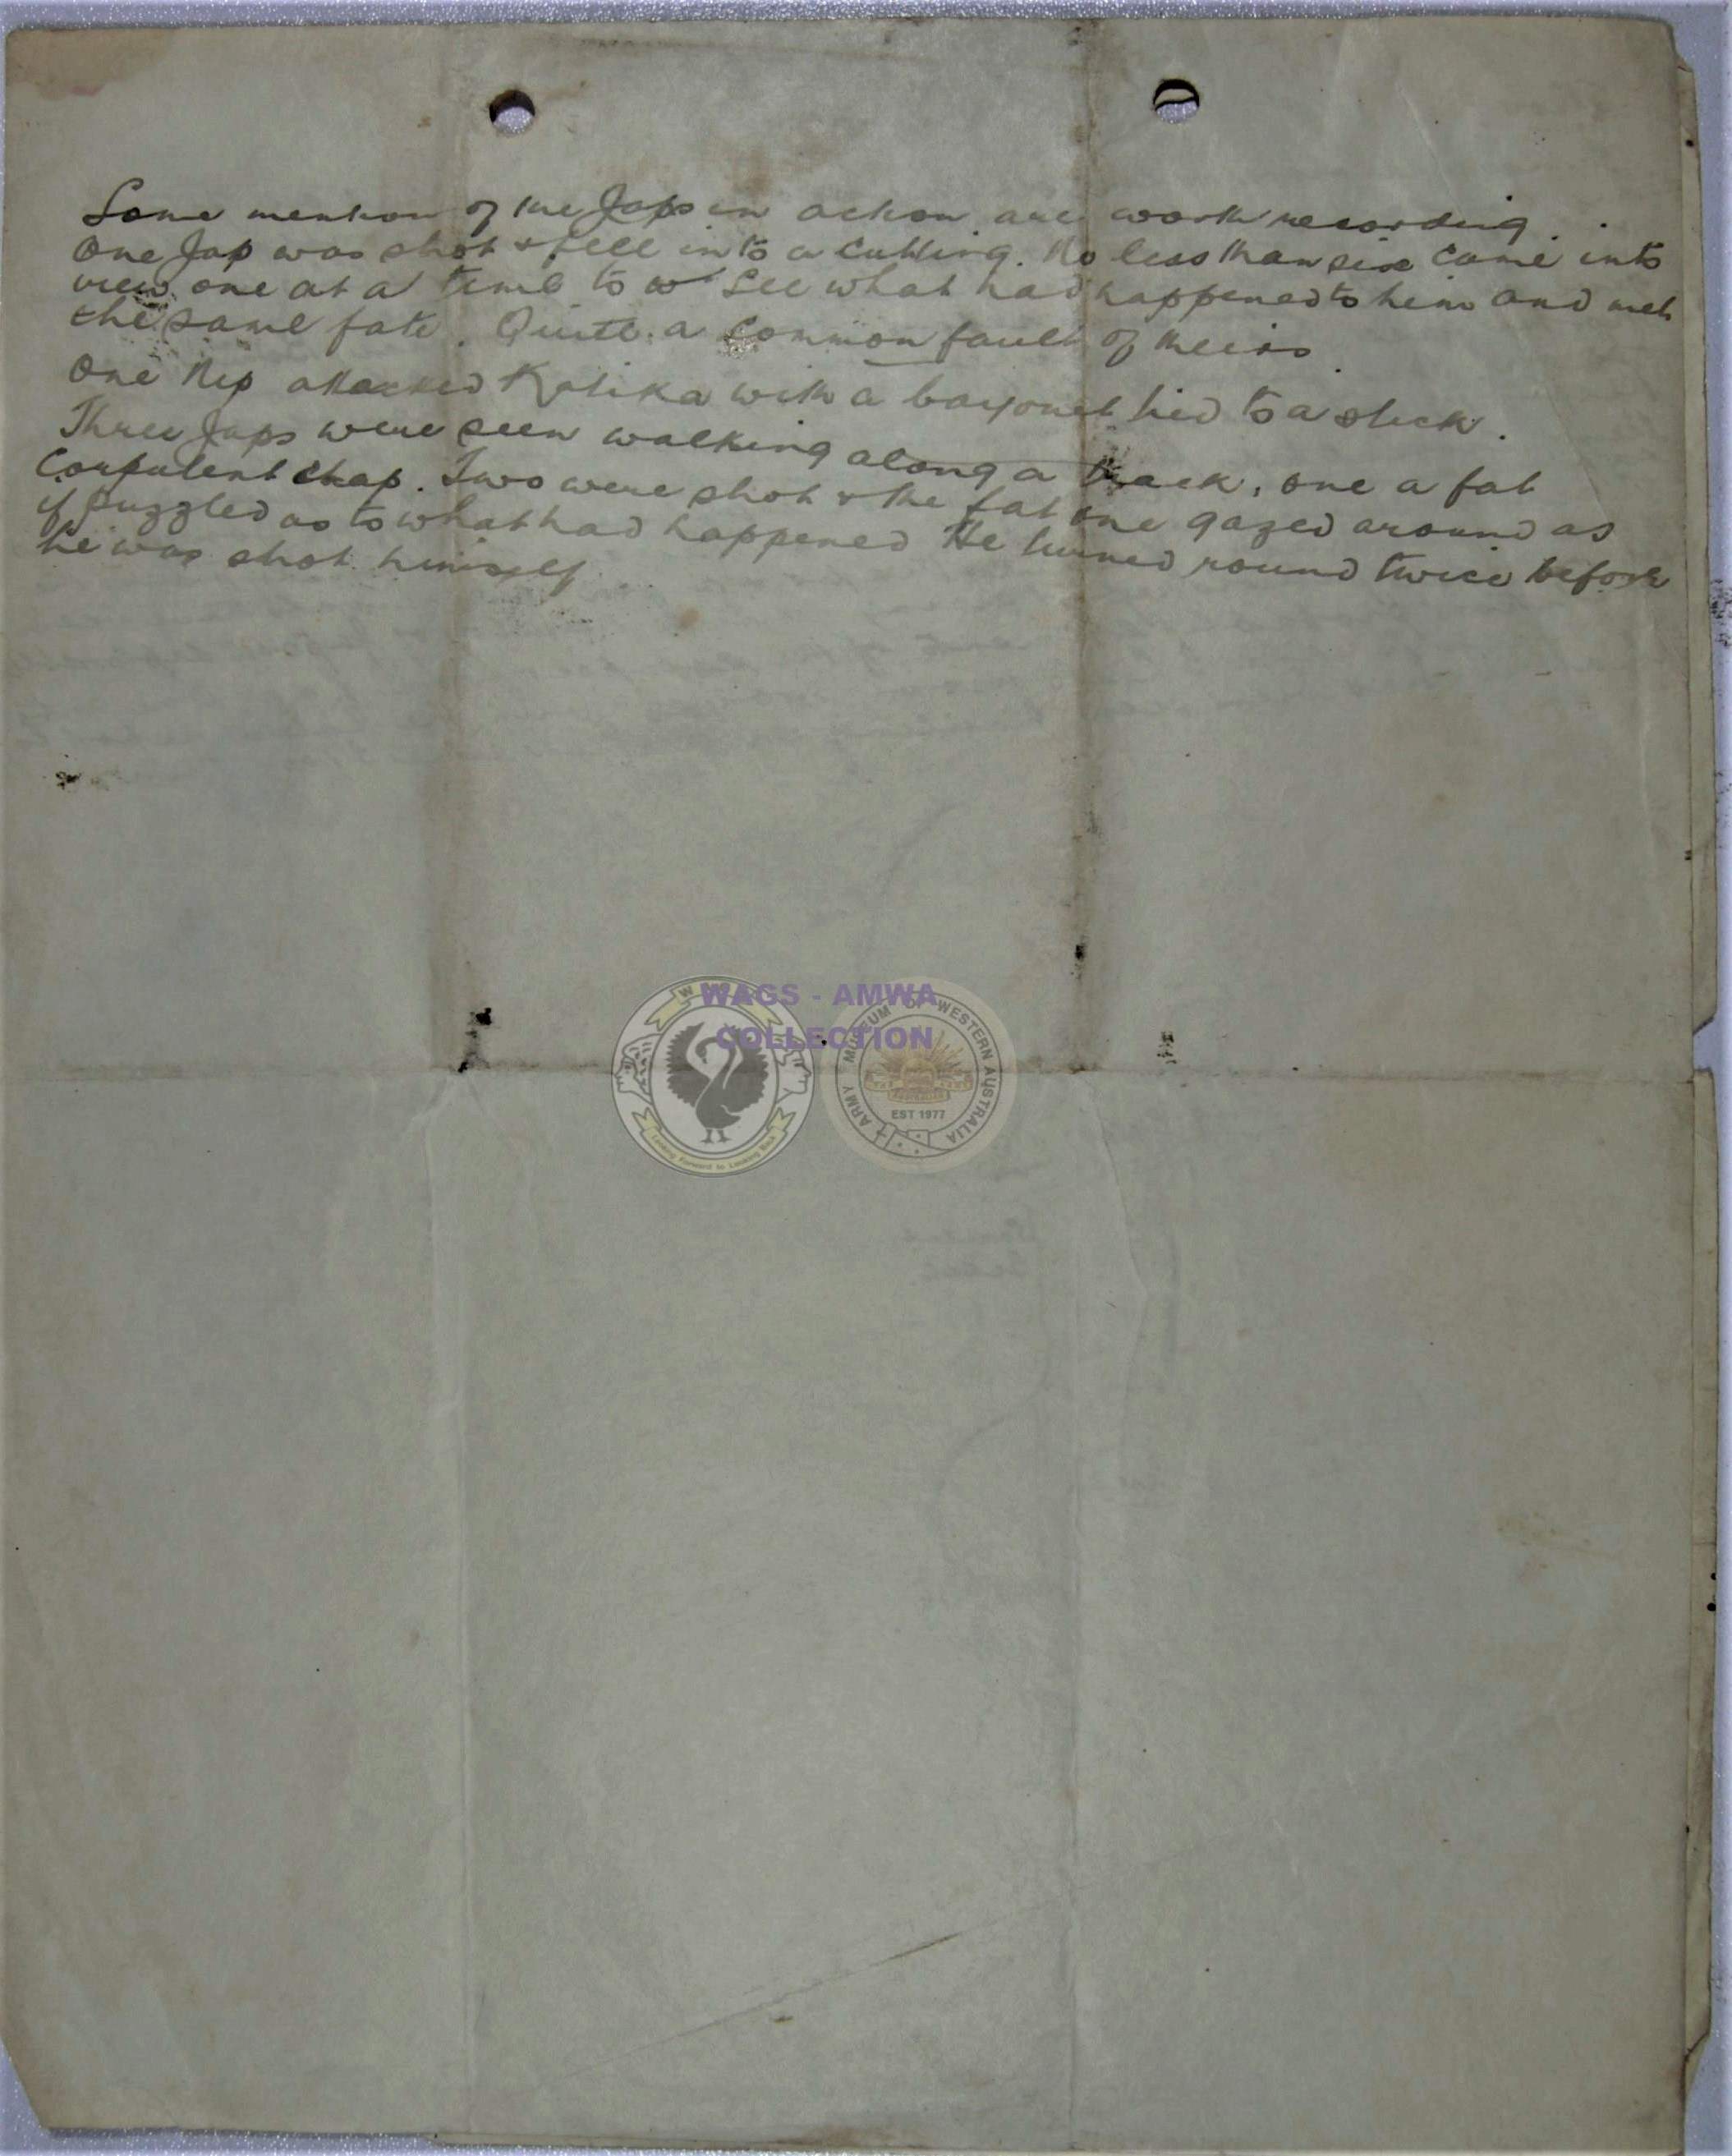 Some mention of the Japs in action are worth recording.
One Jap was shot & fell into a cutting. No less than six came into
view one at a time to see what had happened to him and met
the same fate. Quite a common fault of theirs.
One Nip attacked Kalika with a bayonet tied to a stick.
Three Japs were seen walking along a track, one a fat
Corpulent chap. Two were shot & the fat one gazed around as
if puzzled as to what had happened He turned round twice before
he was shot himself
WAGS - AMWA
COLLECTION
ARMY MUSEUM OF WESTERN AUSTRALIA
EST 1977
Looking Forward to Looking Back